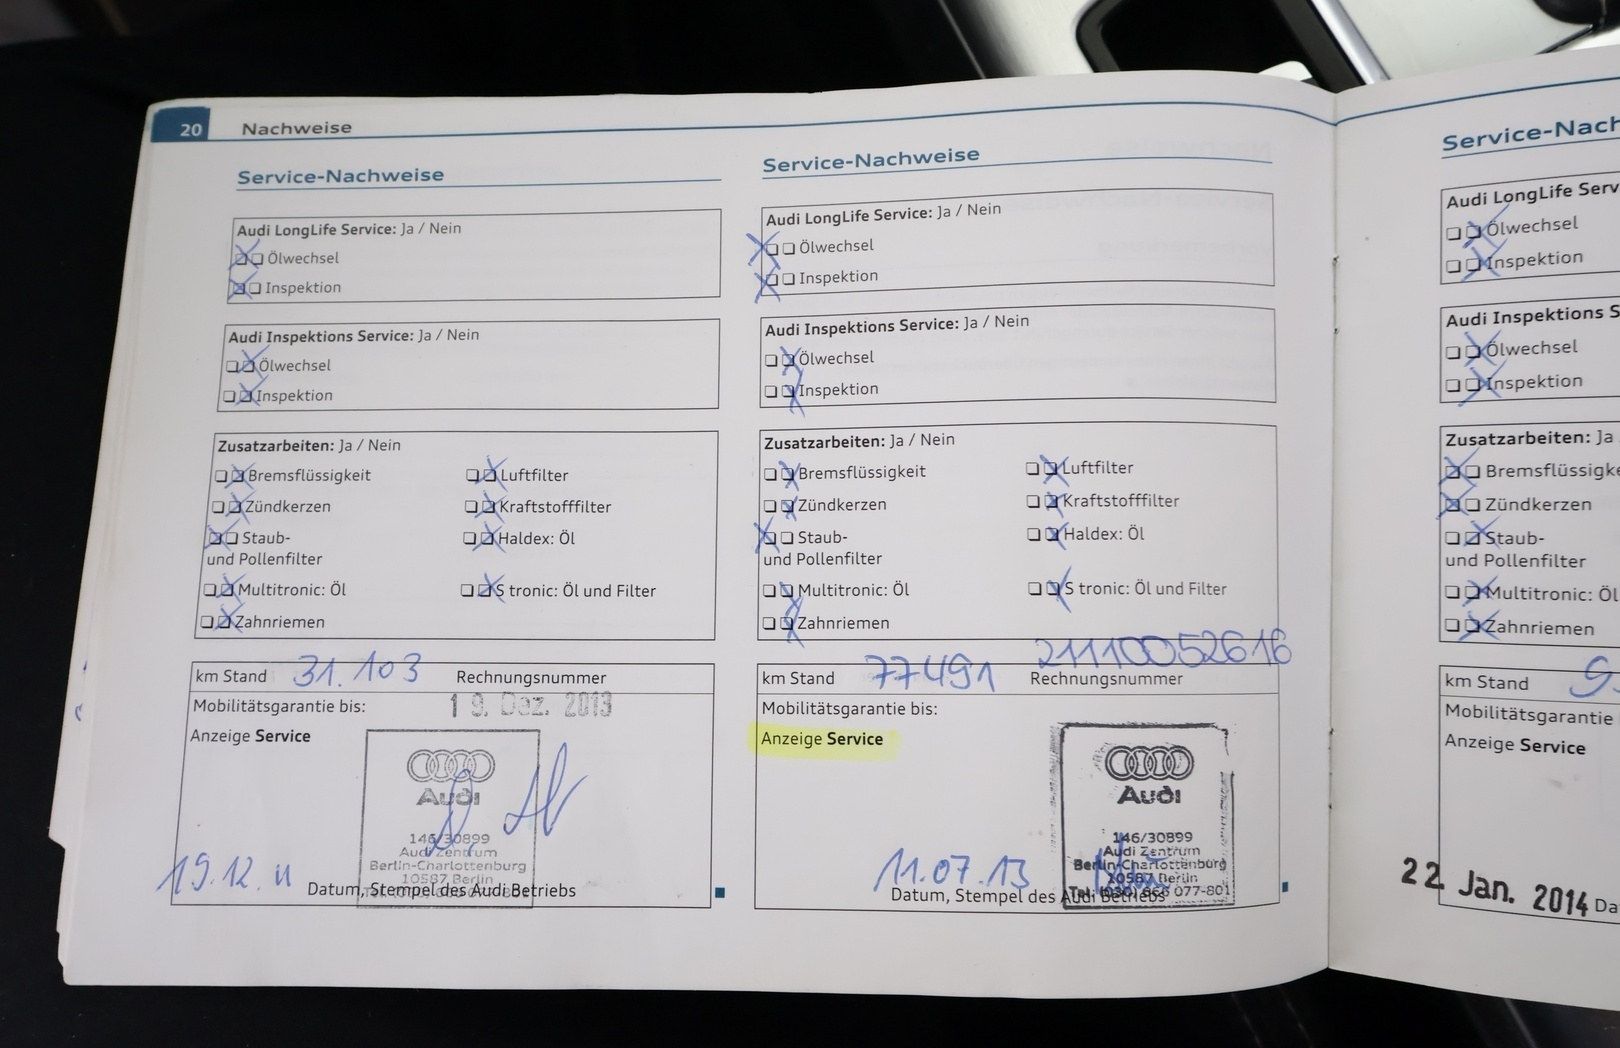 20 Nachweise
Service-Nachweise
Audi LongLife Service: Ja / Nein
Ölwechsel
Inspektion
Audi Inspektions Service: Ja / Nein
Ölwechsel
Inspektion
Zusatzarbeiten: Ja / Nein
Bremsflüssigkeit Luftfilter
Zündkerzen Kraftstofffilter
Staub- Haldex: Öl
und Pollenfilter
Multitronic: Öl S tronic: Öl und Filter
Zahnriemen
km Stand 31.103 Rechnungsnummer
Mobilitätsgarantie bis: 19. Dez. 2013
Anzeige Service
Audi
146/30899
Audi Zentrum
Berlin-Charlottenburg
10587 Berlin
19.12.11 Datum, Stempel des Audi Betriebs
Service-Nachweise
Audi LongLife Service: Ja / Nein
Ölwechsel
Inspektion
Audi Inspektions Service: Ja / Nein
Ölwechsel
Inspektion
Zusatzarbeiten: Ja / Nein
Bremsflüssigkeit Luftfilter
Zündkerzen Kraftstofffilter
Staub- Haldex: Öl
und Pollenfilter
Multitronic: Öl S tronic: Öl und Filter
Zahnriemen
21110052616
km Stand 77491 Rechnungsnummer
Mobilitätsgarantie bis:
Anzeige Service
Audi
146/30899
Audi Zentrum
Berlin-Charlottenburg
10587 Berlin
Tel. (030) 666 077-801
11.07.13
Datum, Stempel des Audi Betriebs
Service-Nach
Audi LongLife Serv
Ölwechsel
Inspektion
Audi Inspektions S
Ölwechsel
Inspektion
Zusatzarbeiten: Ja
Bremsflüssigke
Zündkerzen
Staub-
und Pollenfilter
Multitronic: Öl
Zahnriemen
km Stand 9
Mobilitätsgarantie
Anzeige Service
22 Jan. 2014 Da